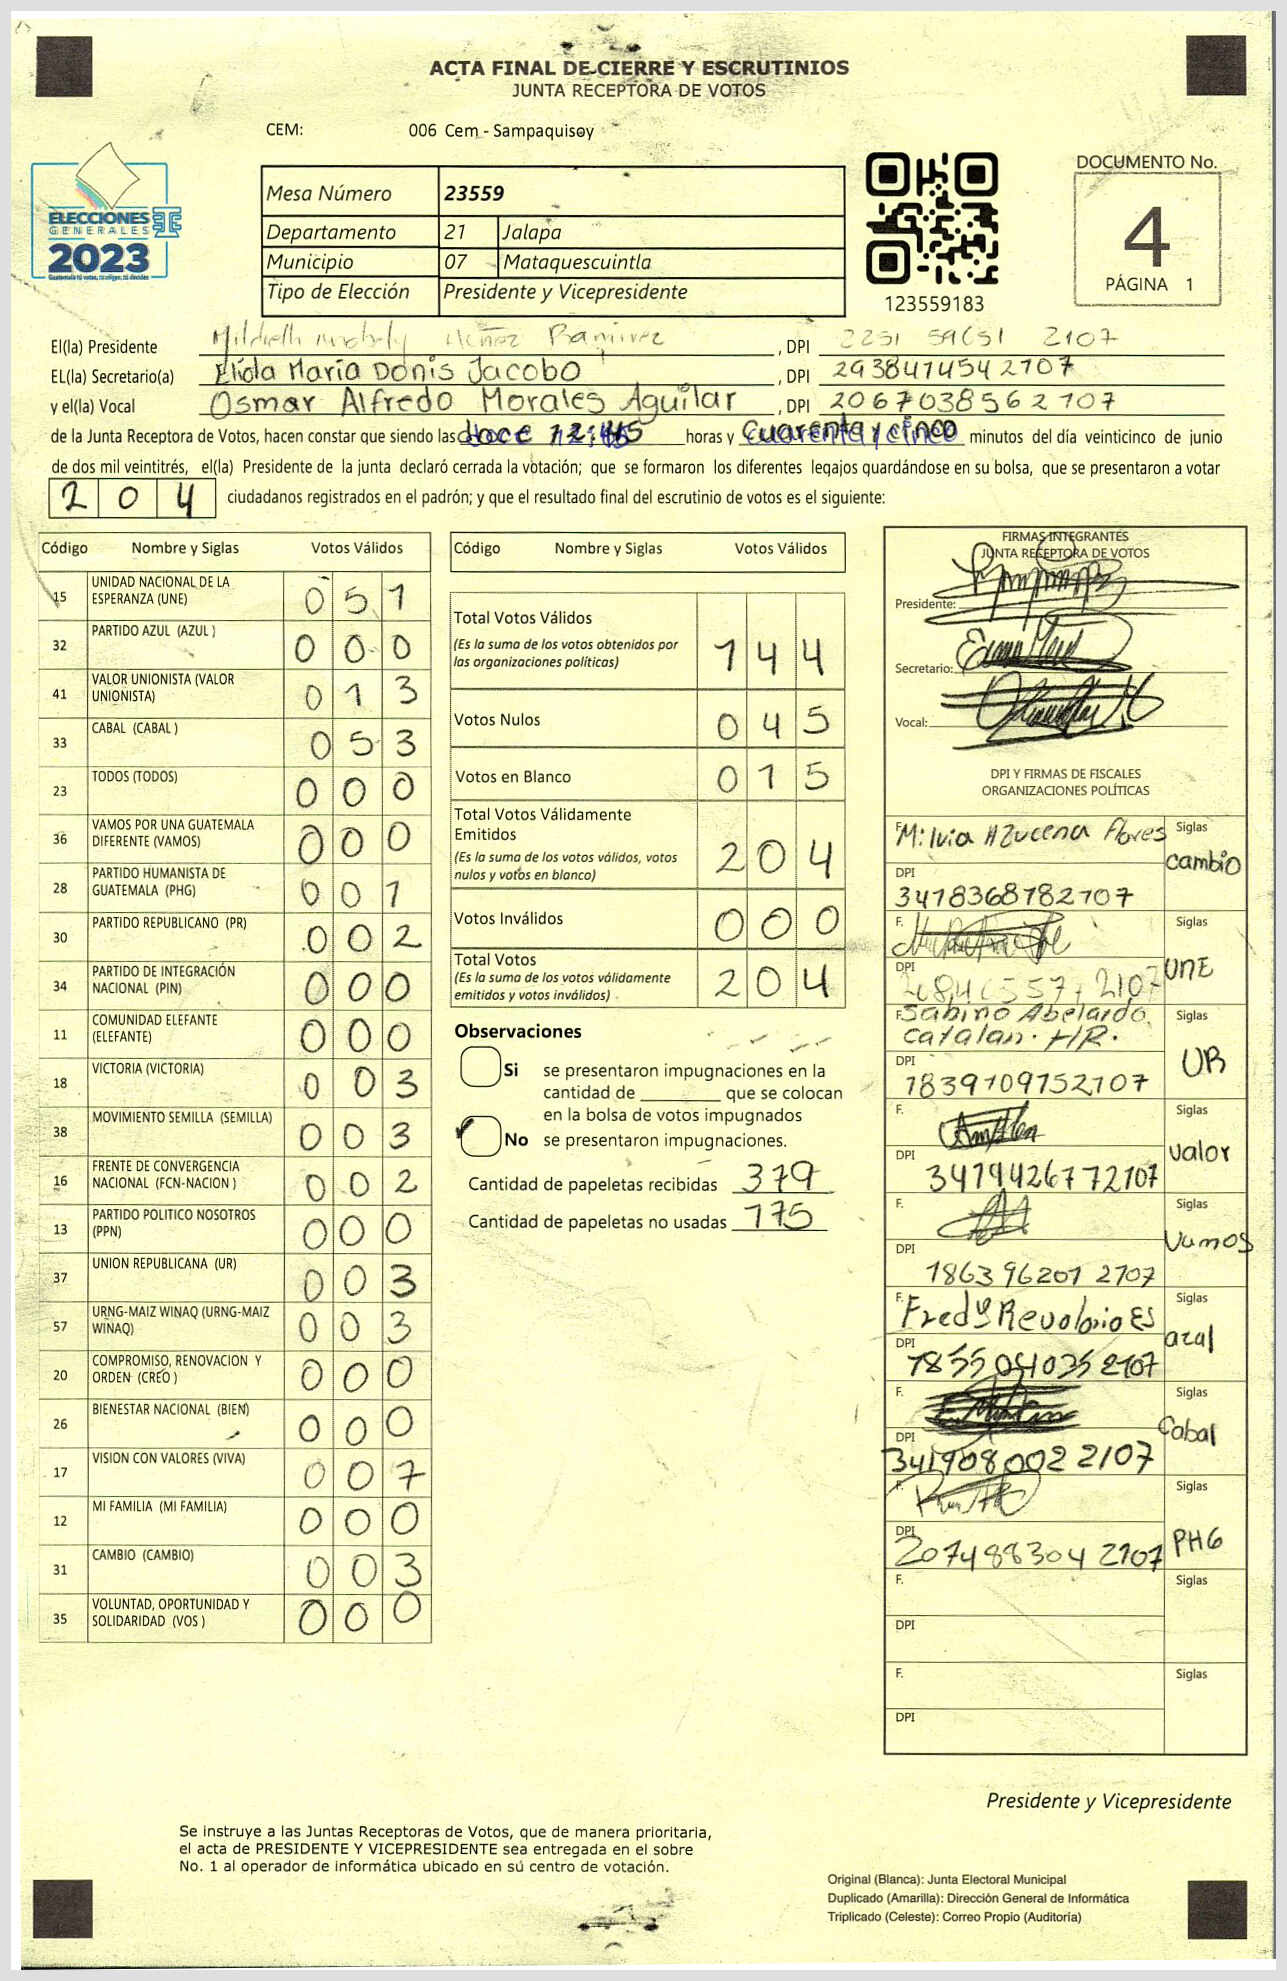 ACTA FINAL DE CIERRE Y ESCRUTINIOS
JUNTA RECEPTORA DE VOTOS
CEM: 006 Cem - Sampaquisoy
ELECCIONES
GENERALES
2023
Guatemala tú votas, tú eliges, tú decides
Mesa Número 23559
Departamento 21 Jalapa
Municipio 07 Mataquescuintla
Tipo de Elección Presidente y Vicepresidente
123559183
DOCUMENTO No.
4
PÁGINA 1
El(la) Presidente Ramirez , DPI 2251 59651 2107
EL(la) Secretario(a) Elida Maria Donis Jacobo , DPI 2938414542107
y el(la) Vocal Osmar Alfredo Morales Aguilar , DPI 2067038562107
de la Junta Receptora de Votos, hacen constar que siendo las doce 12:45 horas y cuarenta y cinco minutos del día veinticinco de junio
de dos mil veintitrés, el(la) Presidente de la junta declaró cerrada la votación; que se formaron los diferentes legajos guardándose en su bolsa, que se presentaron a votar
204 ciudadanos registrados en el padrón; y que el resultado final del escrutinio de votos es el siguiente:
Código Nombre y Siglas Votos Válidos
15 UNIDAD NACIONAL DE LA ESPERANZA (UNE) 0 5 1
32 PARTIDO AZUL (AZUL ) 0 0 0
41 VALOR UNIONISTA (VALOR UNIONISTA) 0 1 3
33 CABAL (CABAL ) 0 5 3
23 TODOS (TODOS) 0 0 0
36 VAMOS POR UNA GUATEMALA DIFERENTE (VAMOS) 0 0 0
28 PARTIDO HUMANISTA DE GUATEMALA (PHG) 0 0 1
30 PARTIDO REPUBLICANO (PR) 0 0 2
34 PARTIDO DE INTEGRACIÓN NACIONAL (PIN) 0 0 0
11 COMUNIDAD ELEFANTE (ELEFANTE) 0 0 0
18 VICTORIA (VICTORIA) 0 0 3
38 MOVIMIENTO SEMILLA (SEMILLA) 0 0 3
16 FRENTE DE CONVERGENCIA NACIONAL (FCN-NACION ) 0 0 2
13 PARTIDO POLITICO NOSOTROS (PPN) 0 0 0
37 UNION REPUBLICANA (UR) 0 0 3
57 URNG-MAIZ WINAQ (URNG-MAIZ WINAQ) 0 0 3
20 COMPROMISO, RENOVACION Y ORDEN (CREO ) 0 0 0
26 BIENESTAR NACIONAL (BIEN) 0 0 0
17 VISION CON VALORES (VIVA) 0 0 7
12 MI FAMILIA (MI FAMILIA) 0 0 0
31 CAMBIO (CAMBIO) 0 0 3
35 VOLUNTAD, OPORTUNIDAD Y SOLIDARIDAD (VOS ) 0 0 0
Código Nombre y Siglas Votos Válidos
Total Votos Válidos 1 4 4
(Es la suma de los votos obtenidos por
las organizaciones políticas)
Votos Nulos 0 4 5
Votos en Blanco 0 1 5
Total Votos Válidamente
Emitidos 2 0 4
(Es la suma de los votos válidos, votos
nulos y votos en blanco)
Votos Inválidos 0 0 0
Total Votos 2 0 4
(Es la suma de los votos válidamente
emitidos y votos inválidos)
Observaciones
Si se presentaron impugnaciones en la
cantidad de ________ que se colocan
en la bolsa de votos impugnados
No se presentaron impugnaciones.
Cantidad de papeletas recibidas 379
Cantidad de papeletas no usadas 175
FIRMAS INTEGRANTES
JUNTA RECEPTORA DE VOTOS
Presidente:
Secretario:
Vocal:
DPI Y FIRMAS DE FISCALES
ORGANIZACIONES POLÍTICAS
F. Milvia Azucena Flores Siglas cambio
DPI 3418368782107
F. Siglas UNE
DPI
F. Sabino Abelardo Siglas UR
Catalan. H.R.
DPI 1839109752107
F. Siglas valor
DPI 3419426772107
F. Siglas Vamos
DPI 1863 96201 2107
F. Fredy Revolorio Es Siglas azul
DPI 1855 04035 2107
F. Siglas Cabal
DPI 341908002 2107
F. Siglas PHG
DPI 207488304 2107
F. Siglas
DPI
F. Siglas
DPI
Presidente y Vicepresidente
Se instruye a las Juntas Receptoras de Votos, que de manera prioritaria,
el acta de PRESIDENTE Y VICEPRESIDENTE sea entregada en el sobre
No. 1 al operador de informática ubicado en su centro de votación.
Original (Blanca): Junta Electoral Municipal
Duplicado (Amarilla): Dirección General de Informática
Triplicado (Celeste): Correo Propio (Auditoría)